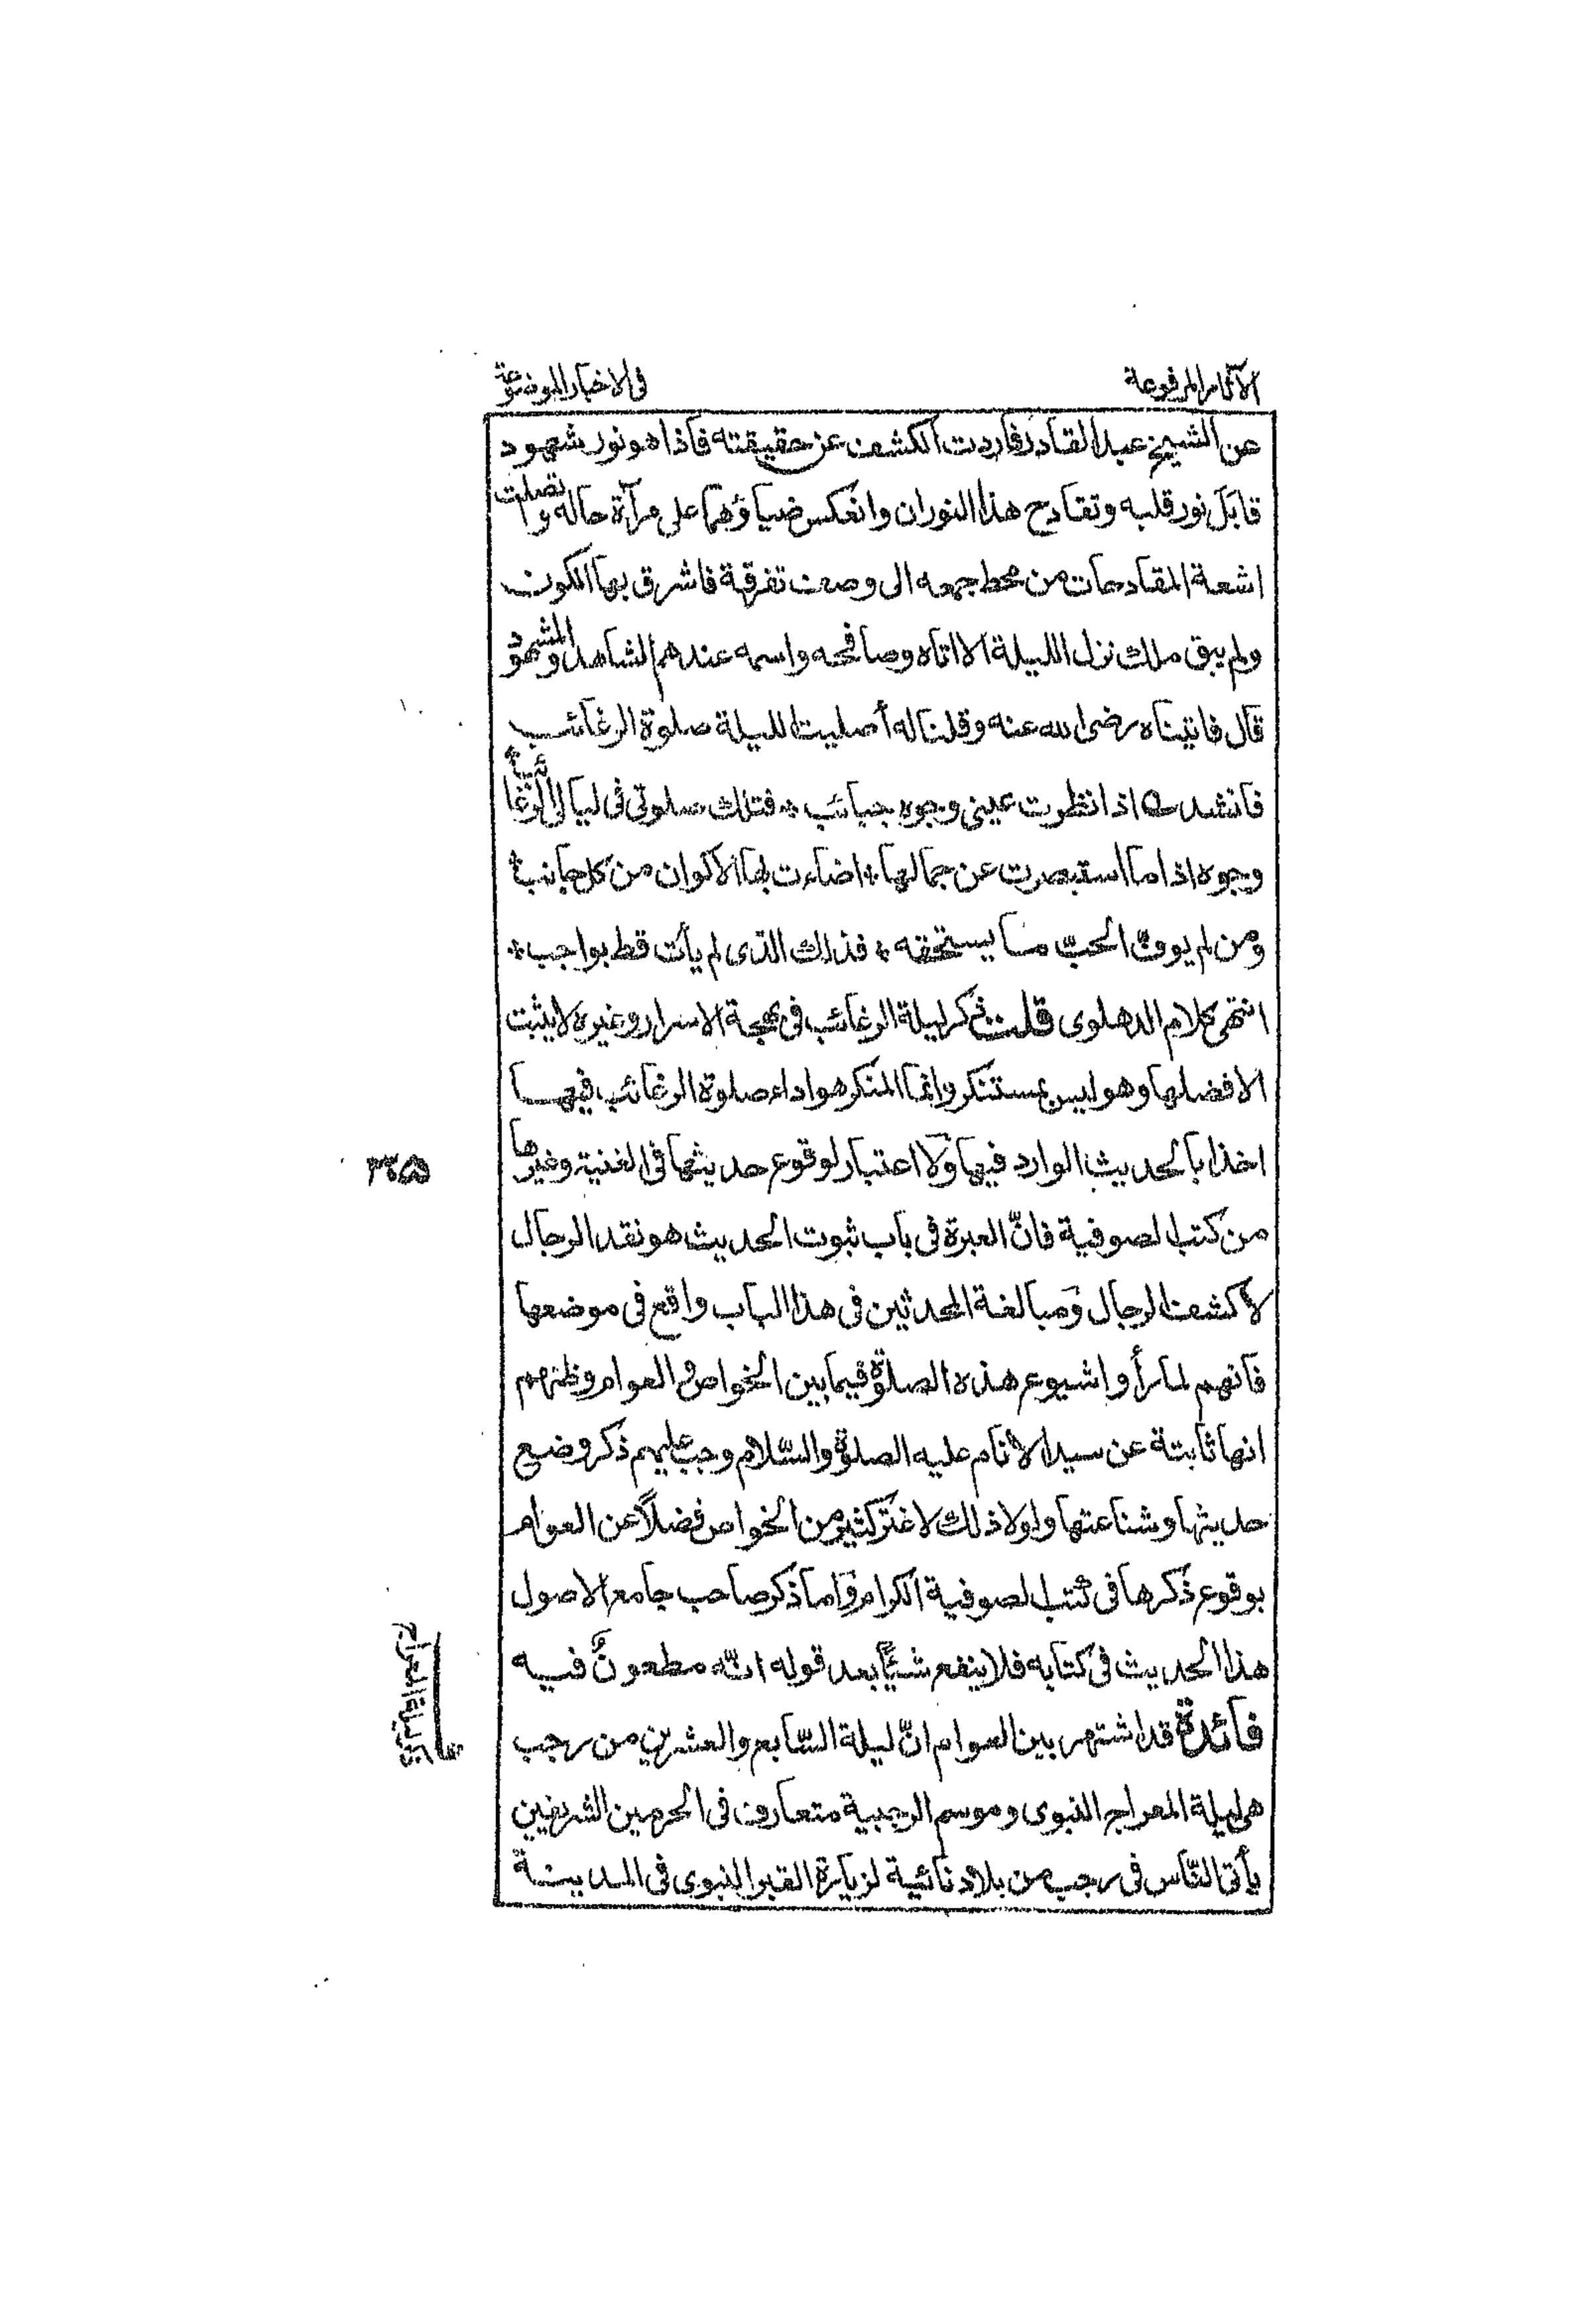 الآثار المرفوعة
فى الاخبار الموضوعة
عن الشيخ عبد القادر فاردت الكشف عن حقيقته فاذا هو نور شهود
قابل نور قلبه وتقادح هذا النوران وانعكس ضياؤهما على مرآة حاله واتصلت
اشعة المقادحات من محط جمعه الى وصف تفرقة فاشرق بها الكون
ولم يبق ملك نزل الليلة الا اتاه وصافحه واسمه عندهم الشاهد والمشهود
قال فاتيناه رضى الله عنه وقلنا له أصليت الليلة صلوة الرغائب
فانشد اذا نظرت عينى وجوه حبائب * فتلك صلوتى فى ليالى الرغائب *
وجوه اذا ما استبصرت عن جمالها * اضاءت بها الاكوان من كل جانب *
ومن لم يوف الحبّ ما يستحقه * فذلك الذى لم يأت قط بواجب *
انتهى كلام الدهلوى قلت ذكر ليلة الرغائب فى بهجة الاسرار وغيره لا يثبت
الا فضلها وهو ليس بمستنكر وانما المنكر هو اداء صلوة الرغائب فيها
اخذا بالحديث الوارد فيها ولا اعتبار لوقوع حديثها فى الغنية وغيرها
من كتب الصوفية فانّ العبرة فى باب ثبوت الحديث هو نقد الرجال
لا كشف الرجال ومبالغة المحدثين فى هذا الباب واقع فى موضعها
فانهم لما رأوا شيوع هذه الصلوة فيما بين الخواص والعوام وظنهم
انها ثابتة عن سيد الانام عليه الصلوة والسّلام وجب عليهم ذكر وضع
حديثها وشناعتها ولولا ذلك لاغتر كثير من الخواص فضلاً عن العوام
بوقوع ذكرها فى كتب الصوفية الكرام واما ذكر صاحب جامع الاصول
هذا الحديث فى كتابه فلا ينفع شيئًا بعد قوله انّه مطعونٌ فيه
فائدة قد اشتهر بين العوام انّ ليلة السّابع والعشرين من رجب
هى ليلة المعراج النبوى وموسم الرجبية متعارف فى الحرمين الشريفين
يأتى النّاس فى رجب من بلاد نائية لزيارة القبر النبوى فى المدينة